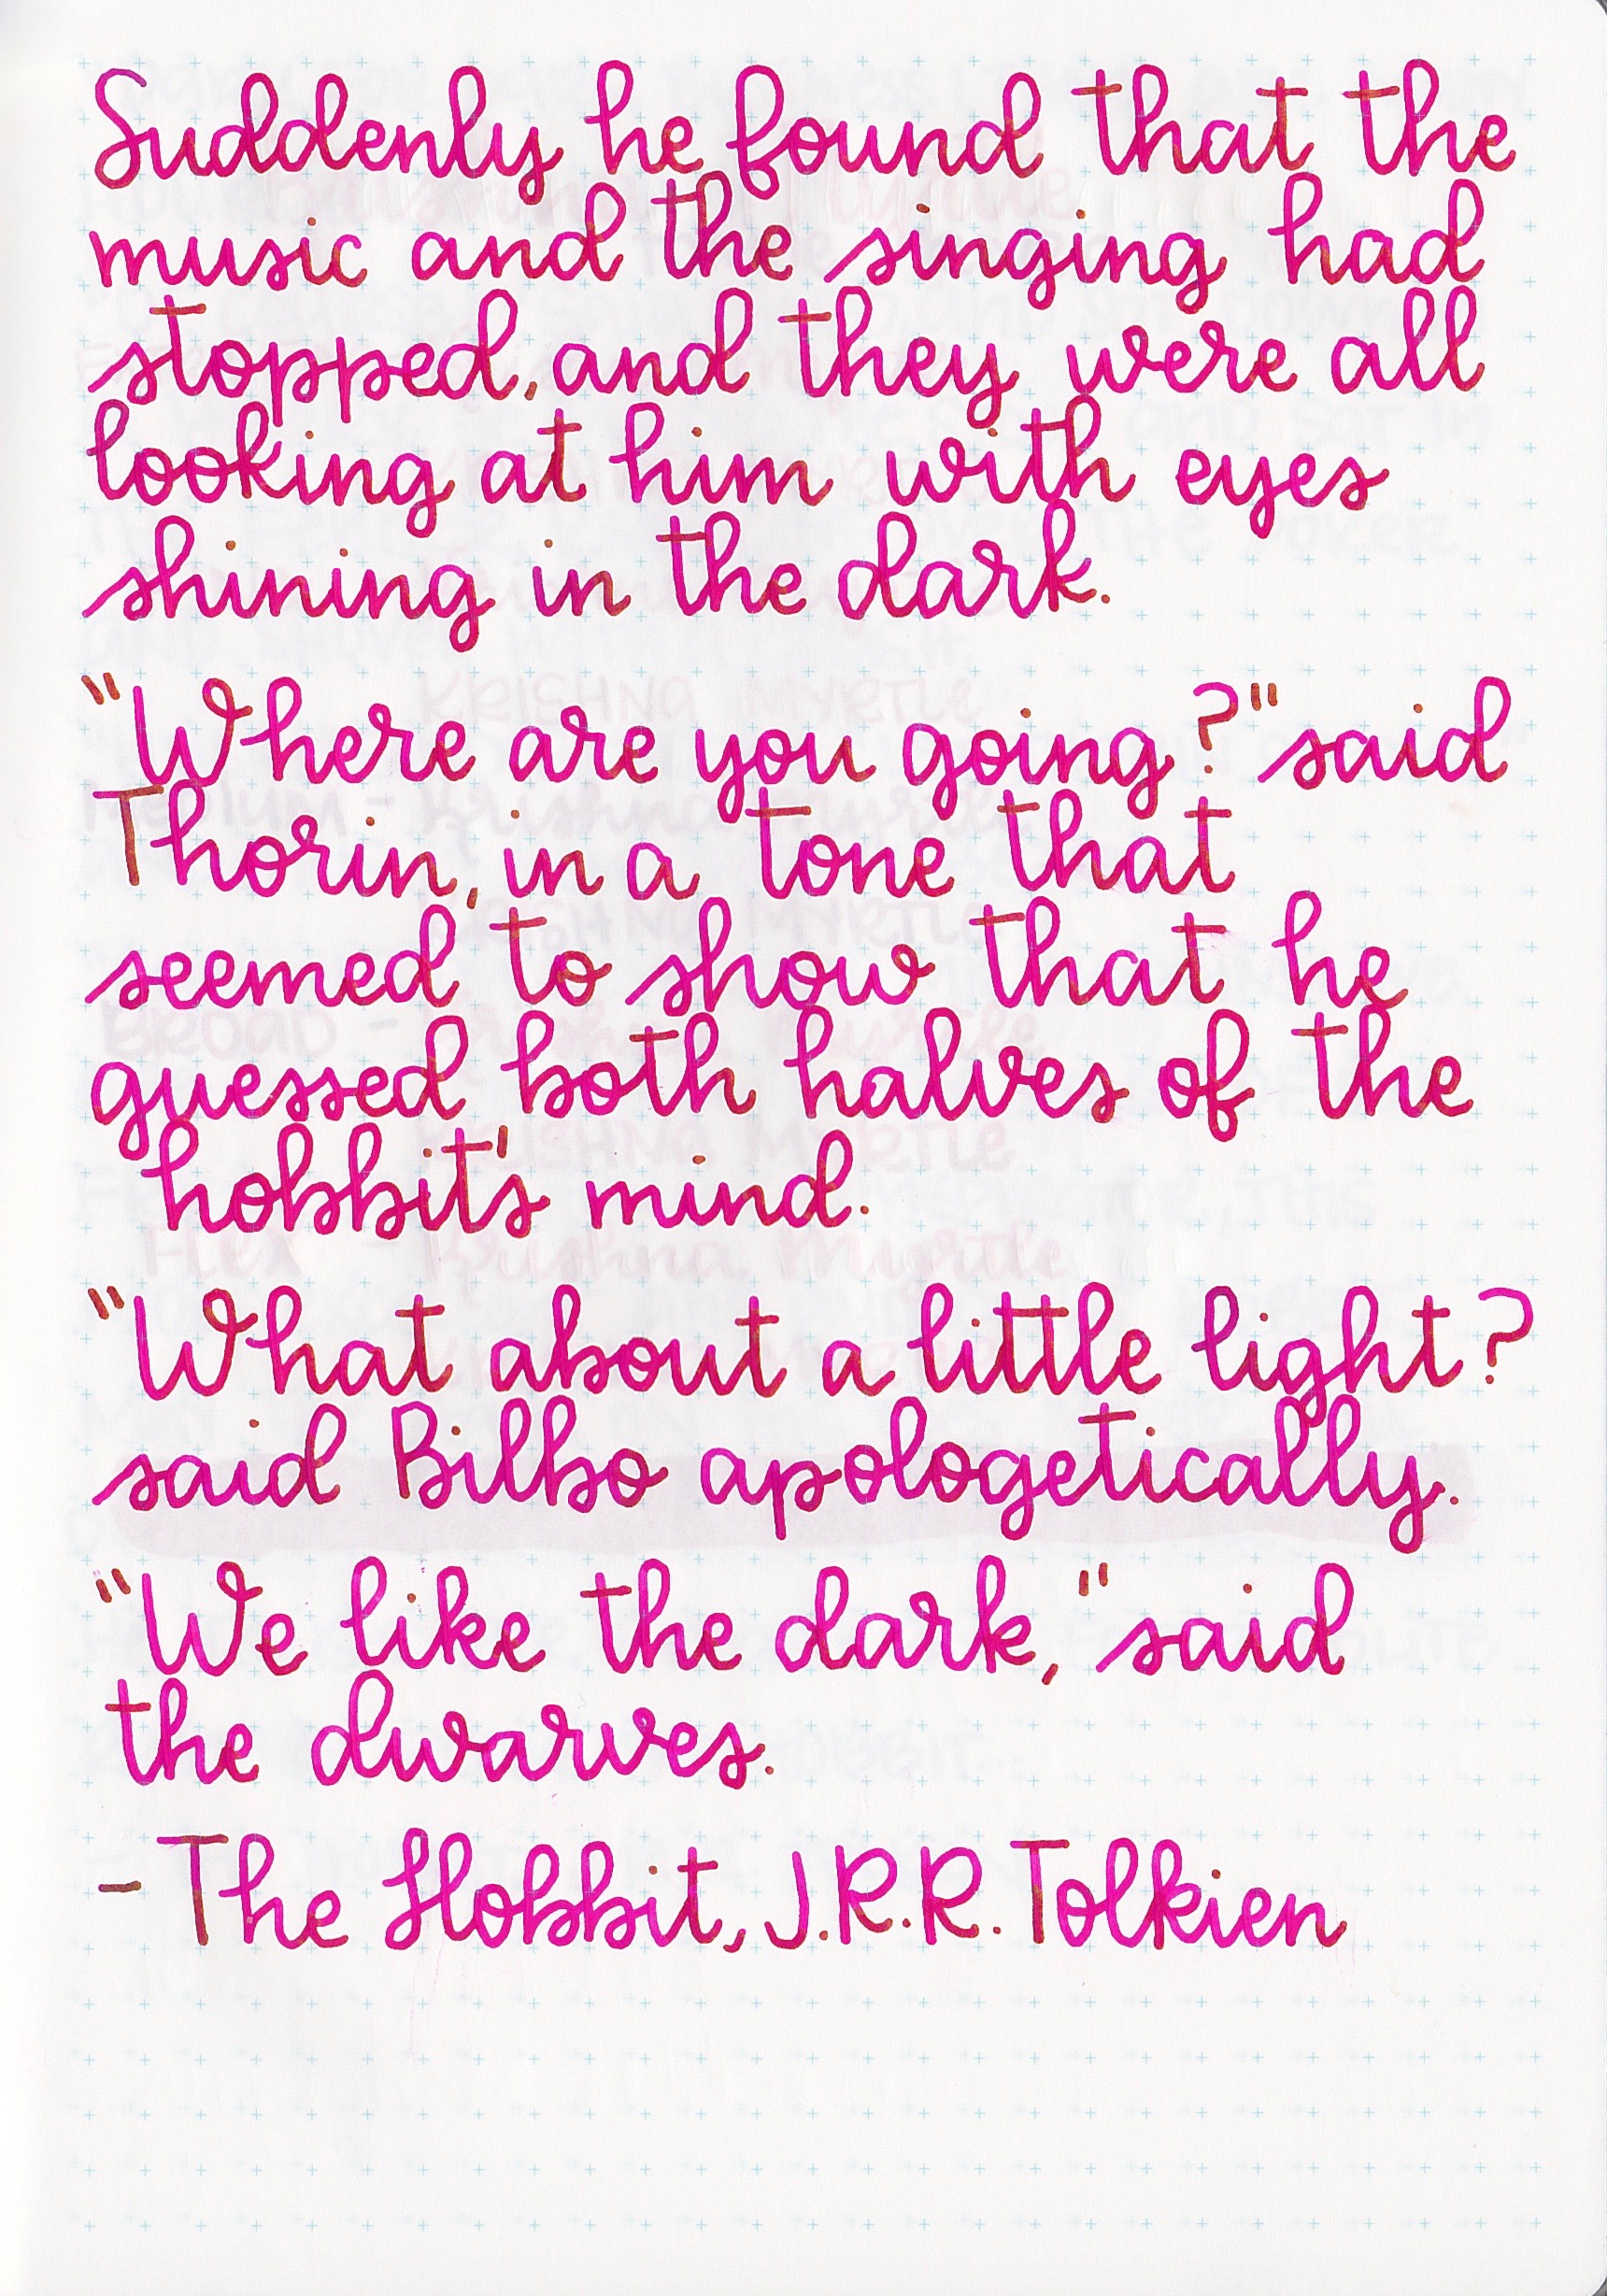 Suddenly he found that the
music and the singing had
stopped, and they were all
looking at him with eyes
shining in the dark.
"Where are you going?" said
Thorin, in a tone that
seemed to show that he
guessed both halves of the
hobbit's mind.
"What about a little light?
said Bilbo apologetically.
"We like the dark," said
the dwarves.
- The Hobbit, J.R.R. Tolkien